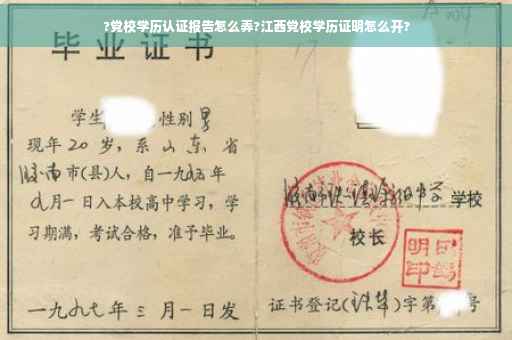 ?党校学历认证报告怎么弄?江西党校学历证明怎么开?
毕业证书
学生 性别男
现年20岁，系山东省
济南市(县)人，自一九九五年
九月一日入本校高中学习，学
习期满，考试合格，准予毕业。
一九九七年三月一日发
学校
校长
明
印
证书登记( )字第 号